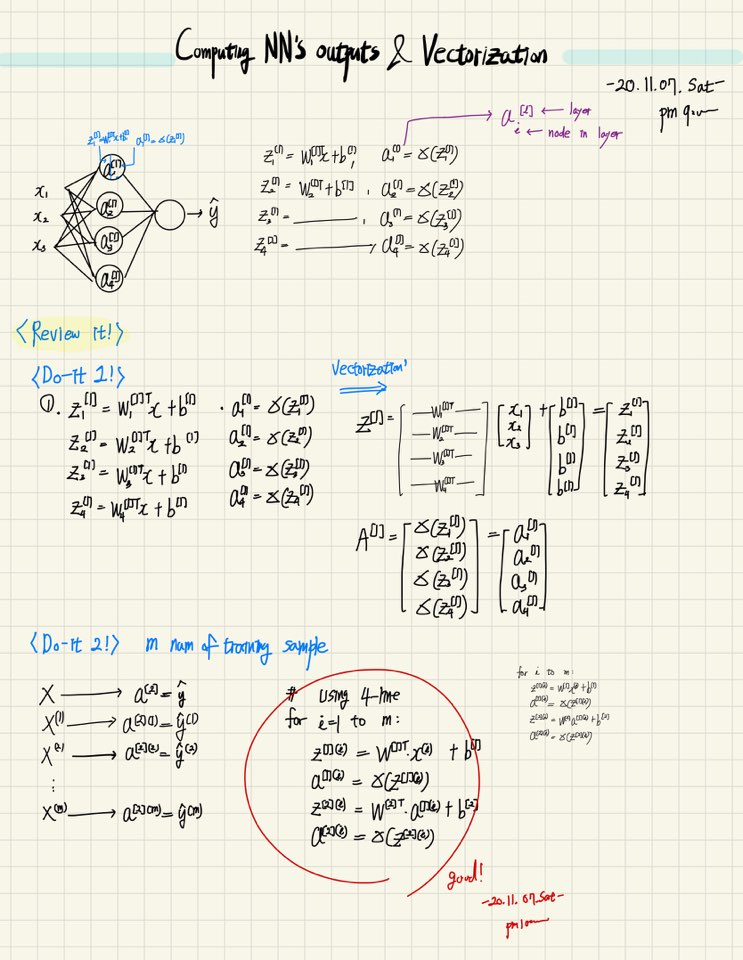 Computing NN's outputs & Vectorization
-20.11.07. Sat-
pm
a_i^[l] ← layer
i ← node in layer
z_1^[1] = W_1^[1]x + b^[1], a_1^[1] = σ(z_1^[1])
x_1
x_2
x_3
a_1^[1]
a_2^[1]
a_3^[1]
a_4^[1]
→ ŷ
z_1^[1] = W_1^[1]x + b^[1], a_1^[1] = σ(z_1^[1])
z_2^[1] = W_2^[1]T + b^[1], a_2^[1] = σ(z_2^[1])
z_3^[1] = ______, a_3^[1] = σ(z_3^[1])
z_4^[1] = ______, a_4^[1] = σ(z_4^[1])
<Review it!>
<Do-it 1!>
①. z_1^[1] = W_1^[1]T x + b^[1] · a_1^[1] = σ(z_1^[1])
z_2^[1] = W_2^[1]T x + b^[1] a_2^[1] = σ(z_2^[1])
z_3^[1] = W_3^[1]T x + b^[1] a_3^[1] = σ(z_3^[1])
z_4^[1] = W_4^[1]T x + b^[1] a_4^[1] = σ(z_4^[1])
Vectorization
Z^[1] = [—W_1^[1]T— —W_2^[1]T— —W_3^[1]T— —W_4^[1]T—] [x_1 x_2 x_3] + [b^[1] b^[1] b^[1] b^[1]] = [z_1^[1] z_2^[1] z_3^[1] z_4^[1]]
A^[1] = [σ(z_1^[1]) σ(z_2^[1]) σ(z_3^[1]) σ(z_4^[1])] = [a_1^[1] a_2^[1] a_3^[1] a_4^[1]]
<Do-it 2!> m num of training sample
X → a^[2] = ŷ
X^(1) → a^[2](1) = ŷ^(1)
X^(2) → a^[2](2) = ŷ^(2)
⋮
X^(m) → a^[2](m) = ŷ^(m)
# Using 4-line
for i=1 to m:
z^[1](i) = W^[1]T · x^(i) + b^[1]
a^[1](i) = σ(z^[1](i))
z^[2](i) = W^[2]T · a^[1](i) + b^[2]
a^[2](i) = σ(z^[2](i))
for i to m:
z^[1](i) = W^[1]x^(i) + b^[1]
a^[1](i) = σ(z^[1](i))
z^[2](i) = W^[2]a^[1](i) + b^[2]
a^[2](i) = σ(z^[2](i))
good!
-20.11.07.Sat-
pm